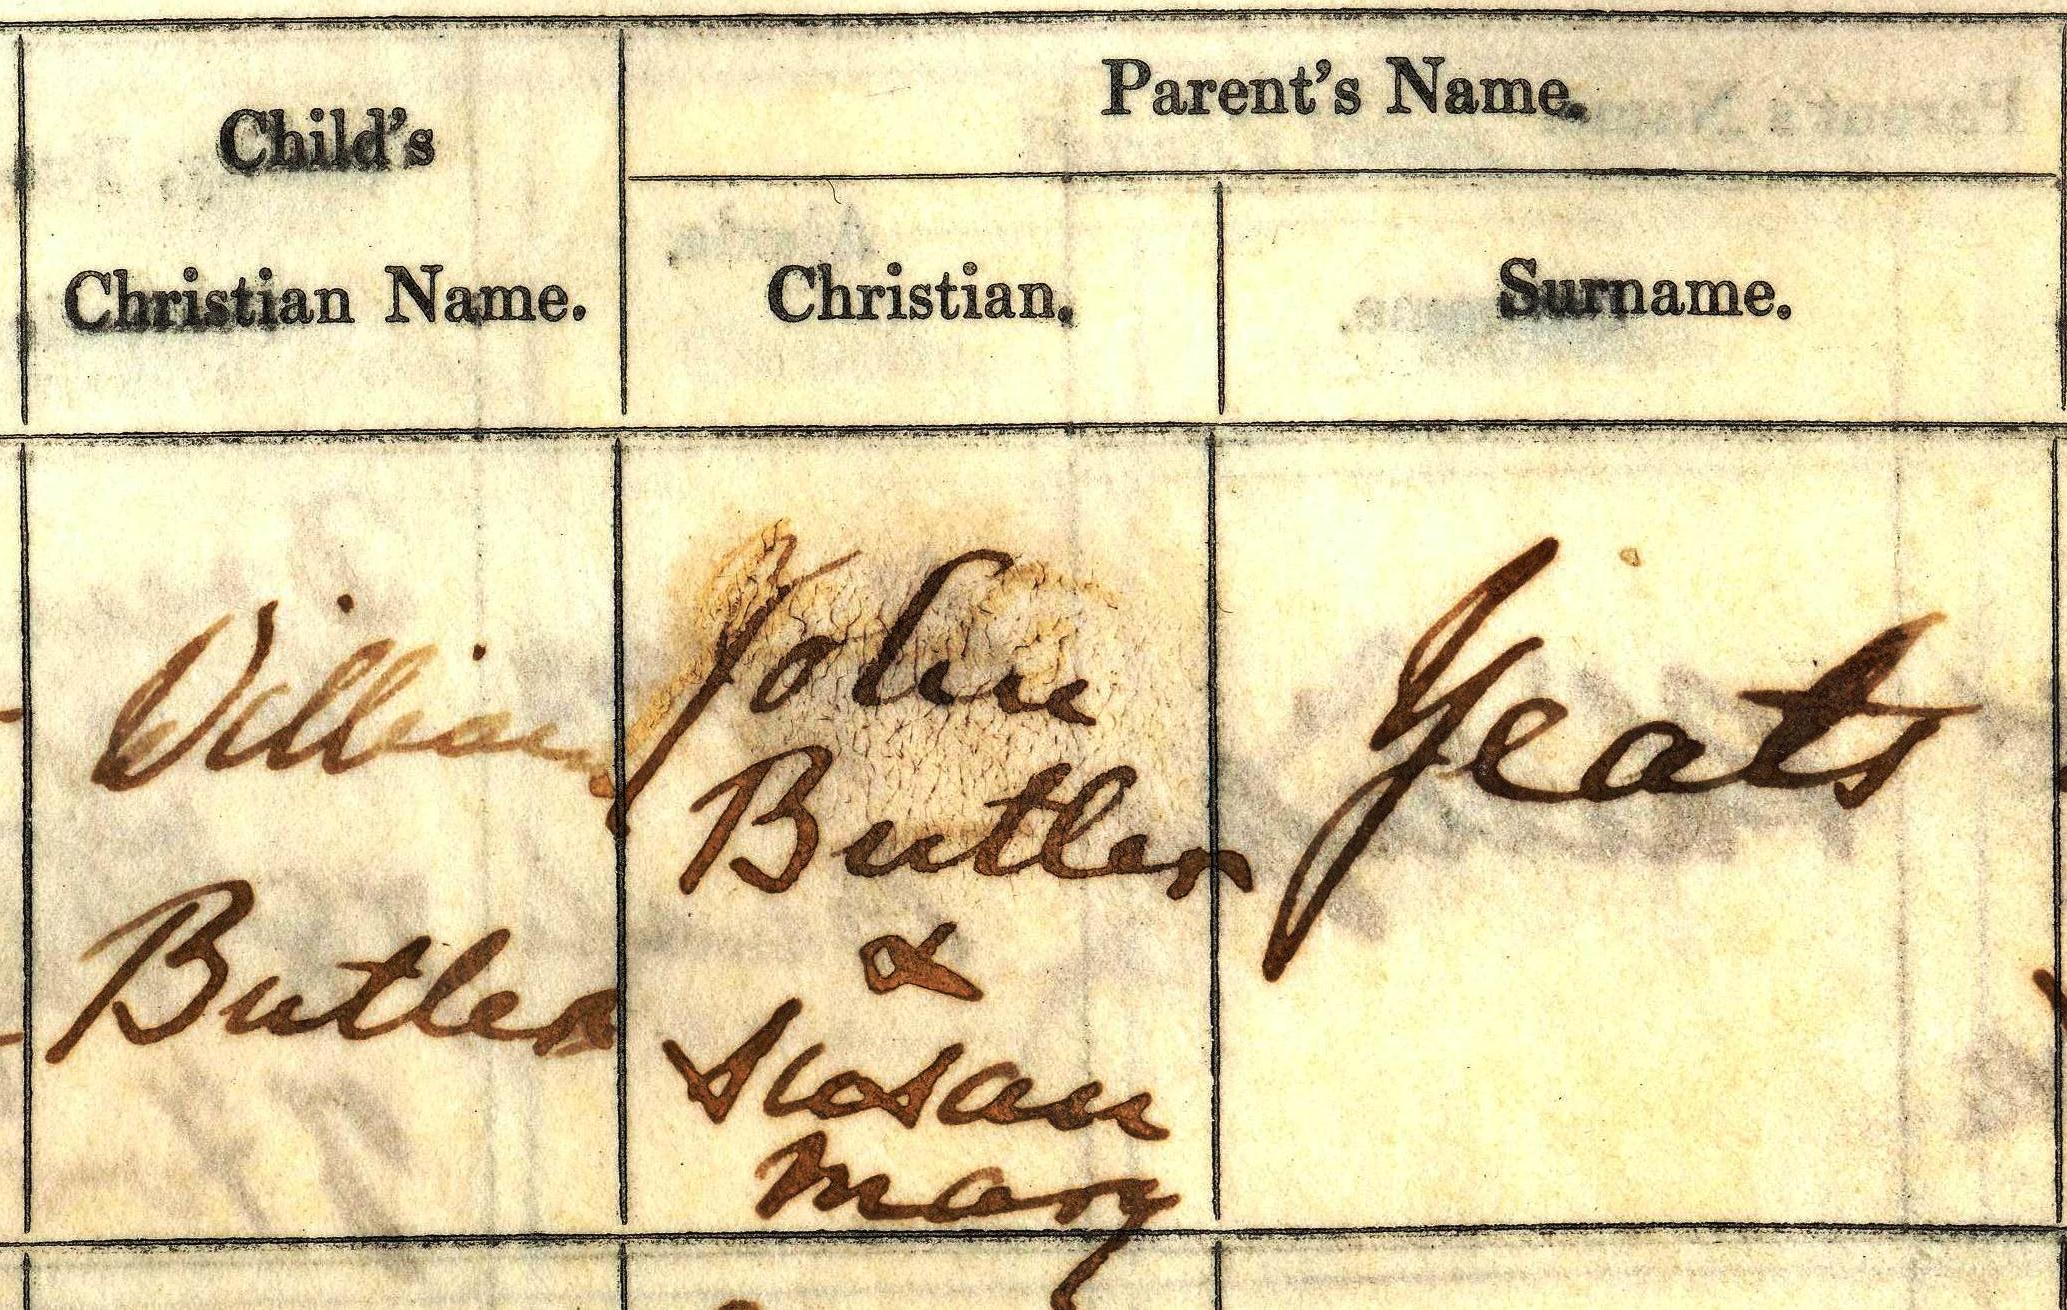 Child's
Christian Name.
Parent's Name.
Christian.
Surname.
William
Butler
John
Butler
&
Susan
Mary
Yeats